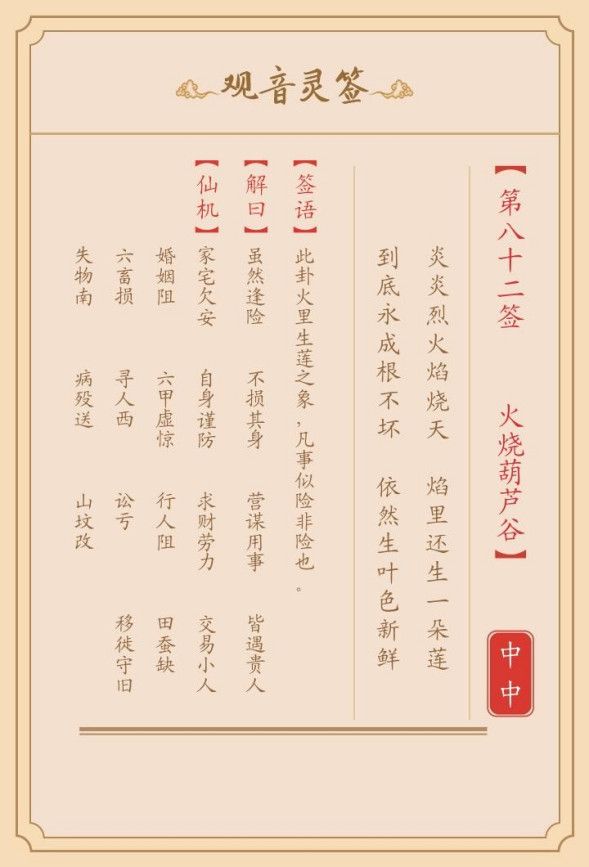 观音灵签
【第八十二签 火烧葫芦谷】
中中
炎炎烈火焰烧天 焰里还生一朵莲
到底永成根不坏 依然生叶色新鲜
【签语】此卦火里生莲之象，凡事似险非险也。
【解曰】虽然逢险 不损其身 营谋用事 皆遇贵人
【仙机】家宅欠安 自身谨防 求财劳力 交易小人
婚姻阻 六甲虚惊 行人阻 田蚕缺
六畜损 寻人西 讼亏 移徙守旧
失物南 病殁送 山坟改